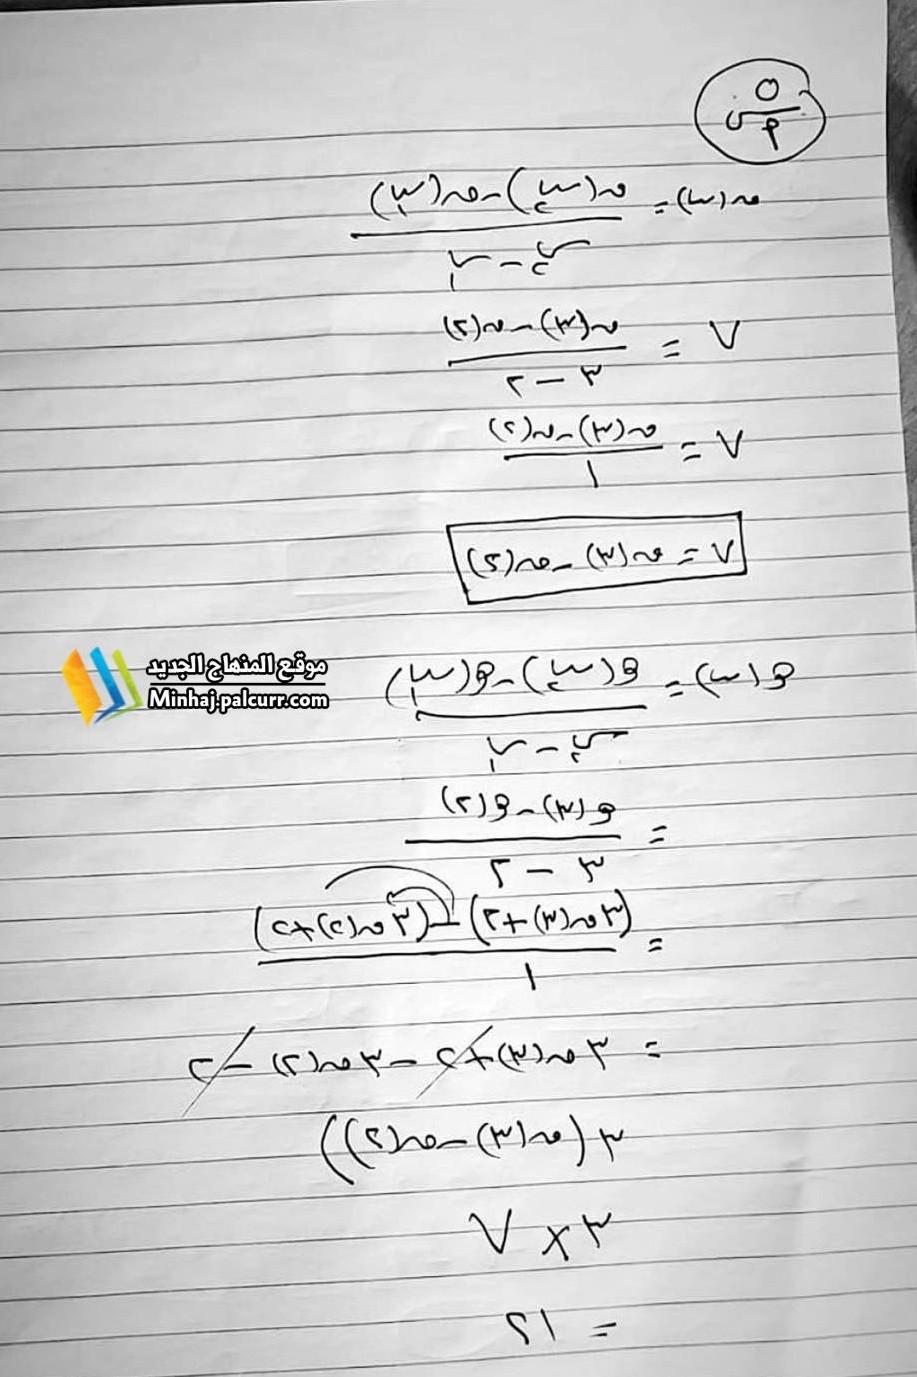 ٥
س٩
ن(س) = ن(س٢) - ن(س١)
س٢ - س١
٧ = ن(٣) - ن(٢)
٣ - ٢
٧ = ن(٣) - ن(٢)
١
٧ = ن(٣) - ن(٢)
موقع المنهاج الجديد
Minhaj.palcurr.com
ه(س) = ه(س٢) - ه(س١)
س٢ - س١
= ه(٣) - ه(٢)
٣ - ٢
= (٣ن(٣) + ٢) - (٣ن(٢) + ٢)
١
= ٣ن(٣) + ٢ - ٣ن(٢) - ٢
٣(ن(٣) - ن(٢))
٣ × ٧
= ٢١